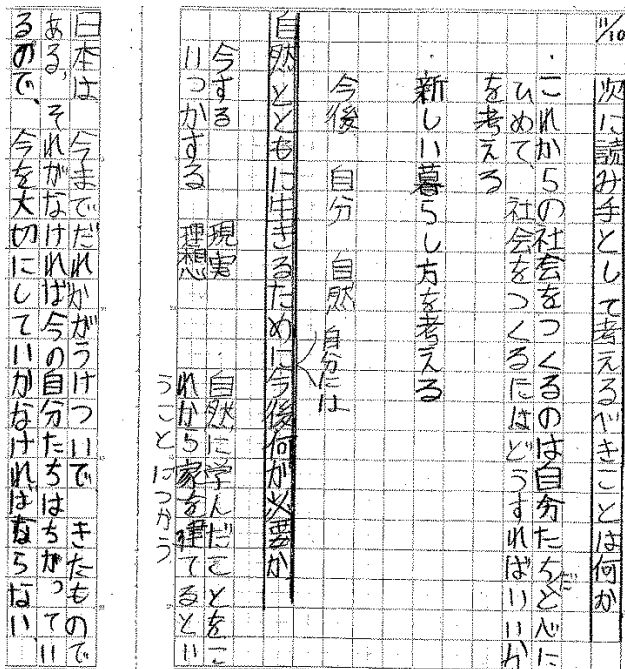 11/10
次に読み手として考えるべきことは何か
・これからの社会をつくるのは自分たちだと心に
ひめて、社会をつくるにはどうすればいいか
を考える
・新しい暮らし方を考える
今後 自分 自然 自分には
自然とともに生きるために今後何が必要か
今する 現実 自然に学んだことをこ
いつかする 理想 れから家を建てるとい
うことにつかう
日本は 今までだれかがうけついで きたもので
ある。それがなければ今の自分たちはちがってい
るので、今を大切にしていかなければならない。